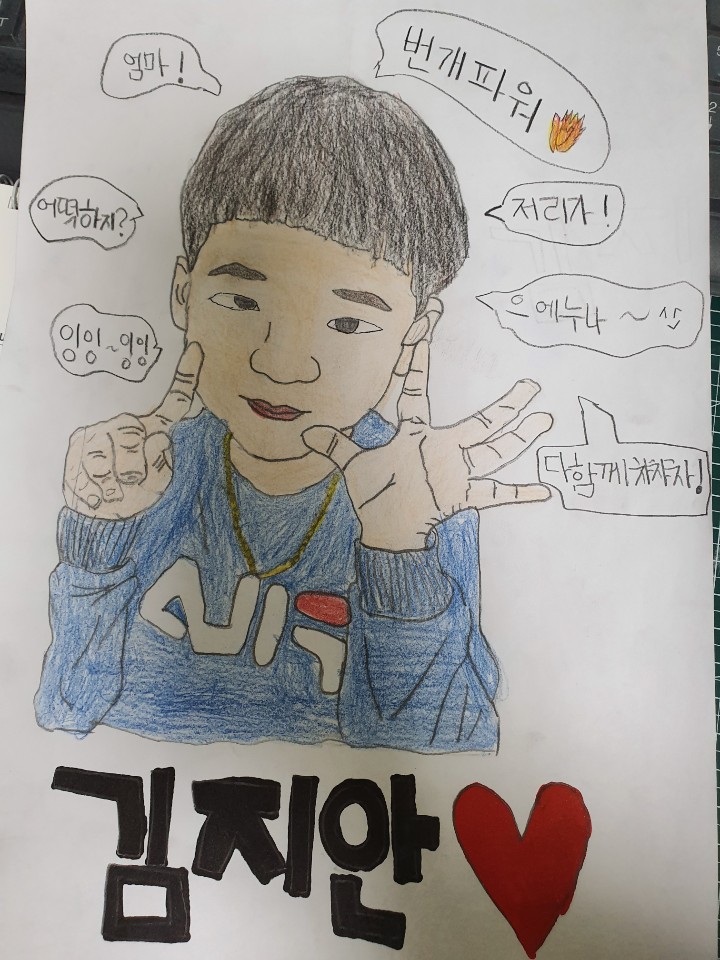 엄마!
번개파워
어떡하지?
저리가!
잉잉~잉잉
으에누나~
다함께차차차!
김지안